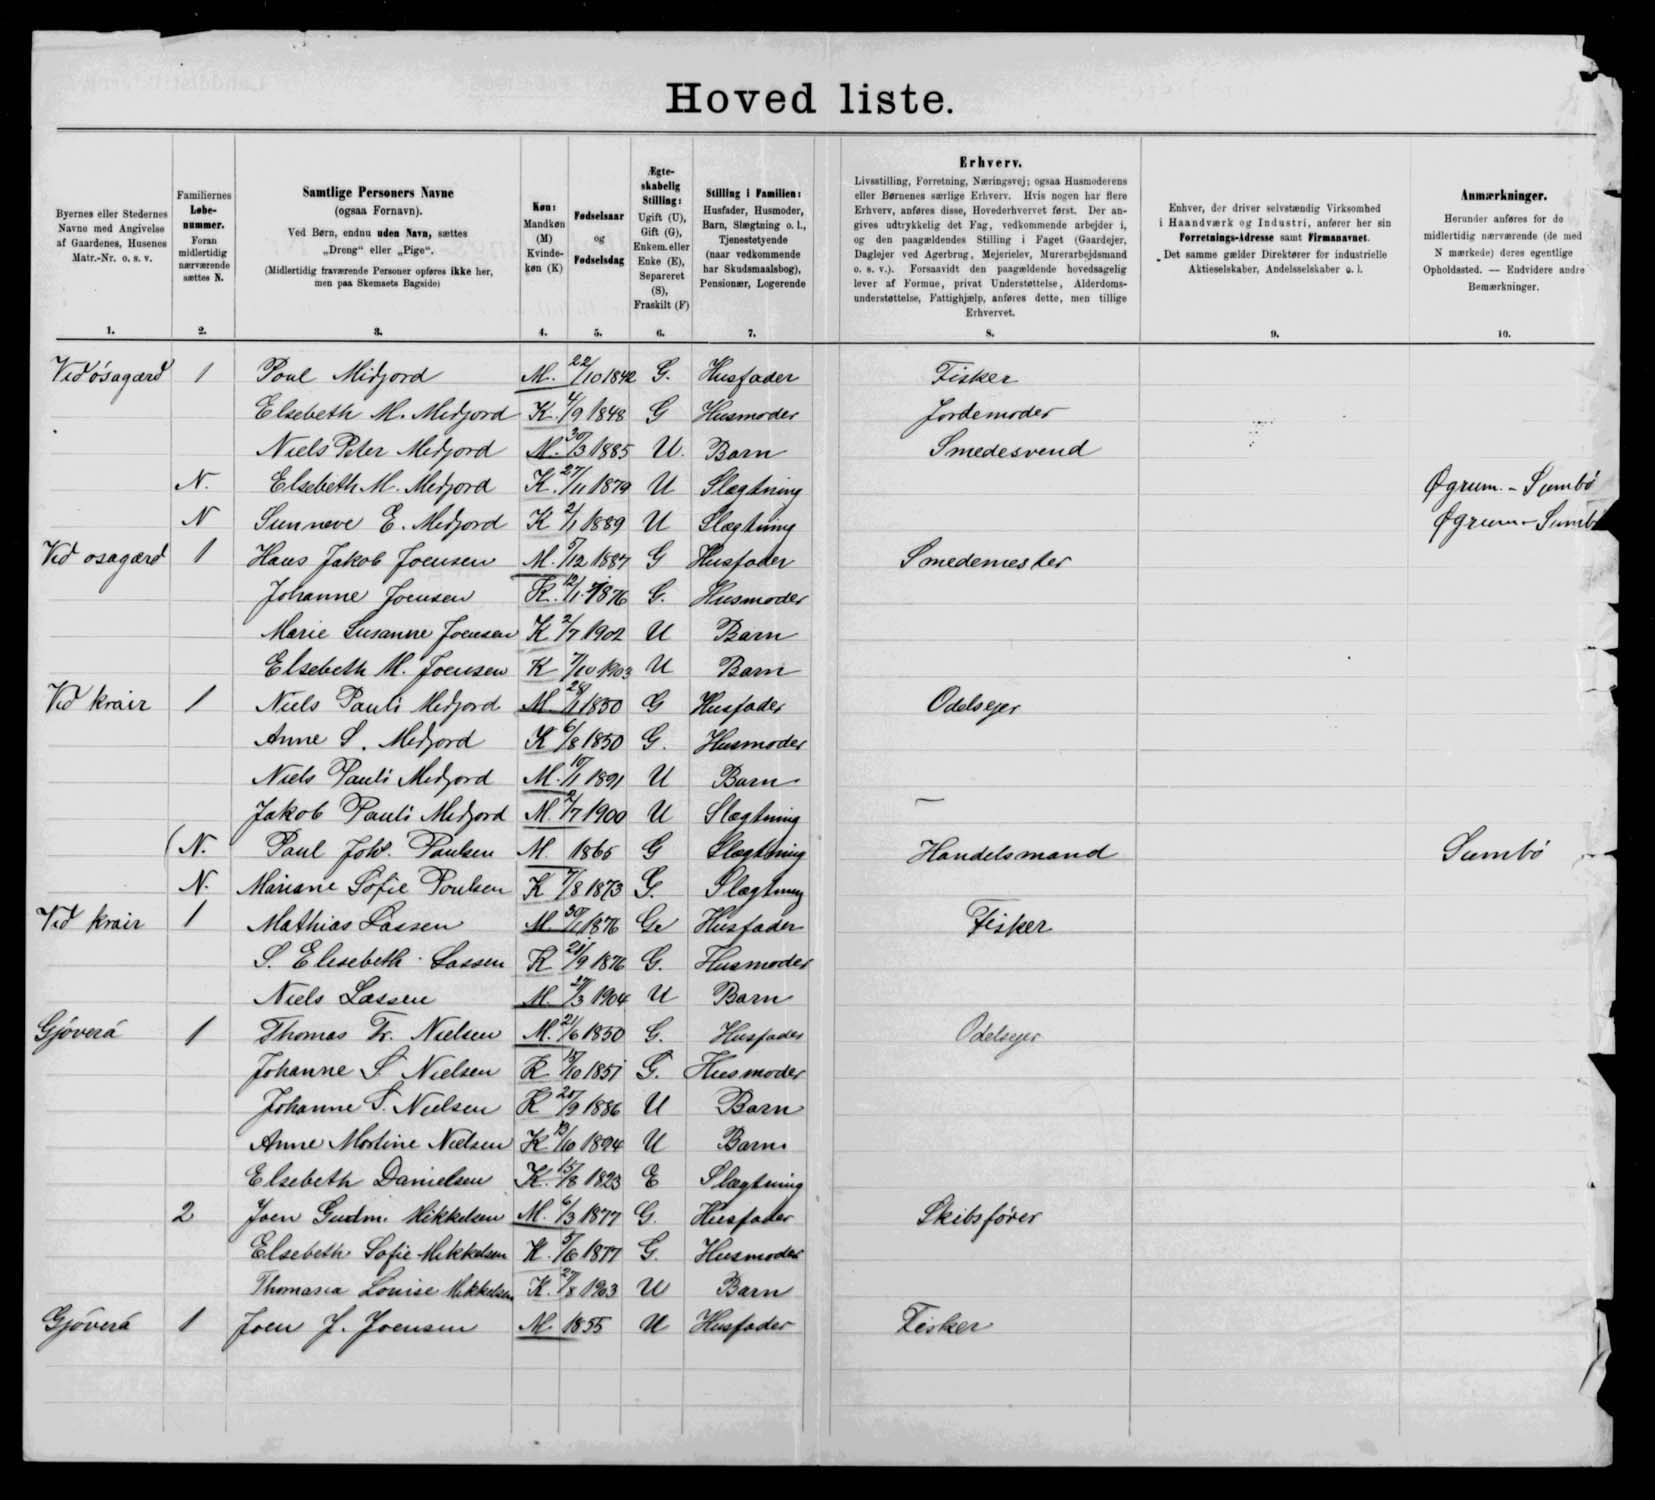 Hoved liste.
Byernes eller Stedernes
Navne med Angivelse
af Gaardenes, Husenes
Matr.-Nr. o. s. v.
1.
Familiernes
Løbe-
nummer.
Foran
midlertidig
nærværende
sættes N.
2.
Samtlige Personers Navne
(ogsaa Fornavn).
Ved Børn, endnu uden Navn, sættes
„Dreng“ eller „Pige“.
(Midlertidig fraværende Personer opføres ikke her,
men paa Skemaets Bagside)
3.
Køn:
Mandkøn
(M)
Kvinde-
køn (K)
4.
Fødselsaar
og
Fødselsdag
5.
Ægte-
skabelig
Stilling:
Ugift (U),
Gift (G),
Enkem. eller
Enke (E),
Separeret
(S),
Fraskilt (F)
6.
Stilling i Familien:
Husfader, Husmoder,
Barn, Slægtning o. l.,
Tjenestetyende
(naar vedkommende
har Skudsmaalsbog),
Pensionær, Logerende
7.
Erhverv.
Livsstilling, Forretning, Næringsvej; ogsaa Husmoderens
eller Børnenes særlige Erhverv. Hvis nogen har flere
Erhverv, anføres disse, Hovederhvervet først. Der an-
gives udtrykkelig det Fag, vedkommende arbejder i,
og den paagældendes Stilling i Faget (Gaardejer,
Daglejer ved Agerbrug, Mejerielev, Murerarbejdsmand
o. s. v.). Forsaavidt den paagældende hovedsagelig
lever af Formue, privat Understøttelse, Alderdoms-
understøttelse, Fattighjælp, anføres dette, men tillige
Erhvervet.
8.
Enhver, der driver selvstændig Virksomhed
i Haandværk og Industri, anfører her sin
Forretnings-Adresse samt Firmanavnet.
Det samme gælder Direktører for industrielle
Aktieselskaber, Andelsselskaber o. l.
9.
Anmærkninger.
Herunder anføres for de
midlertidig nærværende (de med
N mærkede) deres egentlige
Opholdssted. — Endvidere andre
Bemærkninger.
10.
Vid ósagærd 1 Poul Midjord M. 22/10 1842 G. Husfader Fisker
Elsebeth M. Midjord K. 4/9 1848 G Husmoder Jordemoder
Niels Peter Midjord M. 30/3 1885 U. Barn Smedesvend
N. Elsebeth M. Midjord K. 27/11 1879 U Slægtning Øgrum. - Sumbø
N Sunneve E. Midjord K 2/1 1889 U Slægtning Øgrum - Sumbø
Vid osagærd 1 Hans Jakob Joensen M. 5/12 1887 G Husfader Smedemester
Johanne Joensen K. 12/1 1876 G. Husmoder
Marie Susanne Joensen K 2/7 1902 U Barn
Elsebeth M. Joensen K 7/10 1903 U Barn
Vid krair 1 Niels Pauli Midjord M. 28/1 1850 G Husfader Odelsejer
Anne S. Midjord K 6/8 1850 G. Husmoder
Niels Pauli Midjord M. 10/1 1891 U Barn
Jakob Pauli Midjord M. 2/7 1900 U Slægtning —
(N. Paul Joh. Paulsen M. 1865 G Slægtning Handelsmand Sumbø
N. Mariane Sofie Poulsen K 7/8 1873 G. Slægtning
Vid krair 1 Mathias Lassen M. 30/1 1876 G Husfader Fisker
S. Elisebeth Lassen K 21/9 1876 G. Husmoder
Niels Lassen M. 27/3 1904 U Barn
Gjóverá 1 Thomas Fr. Nielsen M. 21/6 1850 G. Husfader Odelsejer
Johanne S Nielsen K 15/10 1851 G. Husmoder
Johanne S. Nielsen K 20/9 1886 U Barn
Anne Martine Nielsen K 13/10 1894 U Barn
Elsebeth Danielsen K. 15/8 1823 E Slægtning
2 Joen Gudm. Mikkelsen M. 6/3 1877 G. Husfader Skibsfører
Elsebeth Sofie Mikkelsen K. 5/6 1877 G. Husmoder
Thomasia Louise Mikkelsen K. 27/8 1903 U Barn
Gjóverá 1 Joen J. Joensen M. 1855 U Husfader Fisker